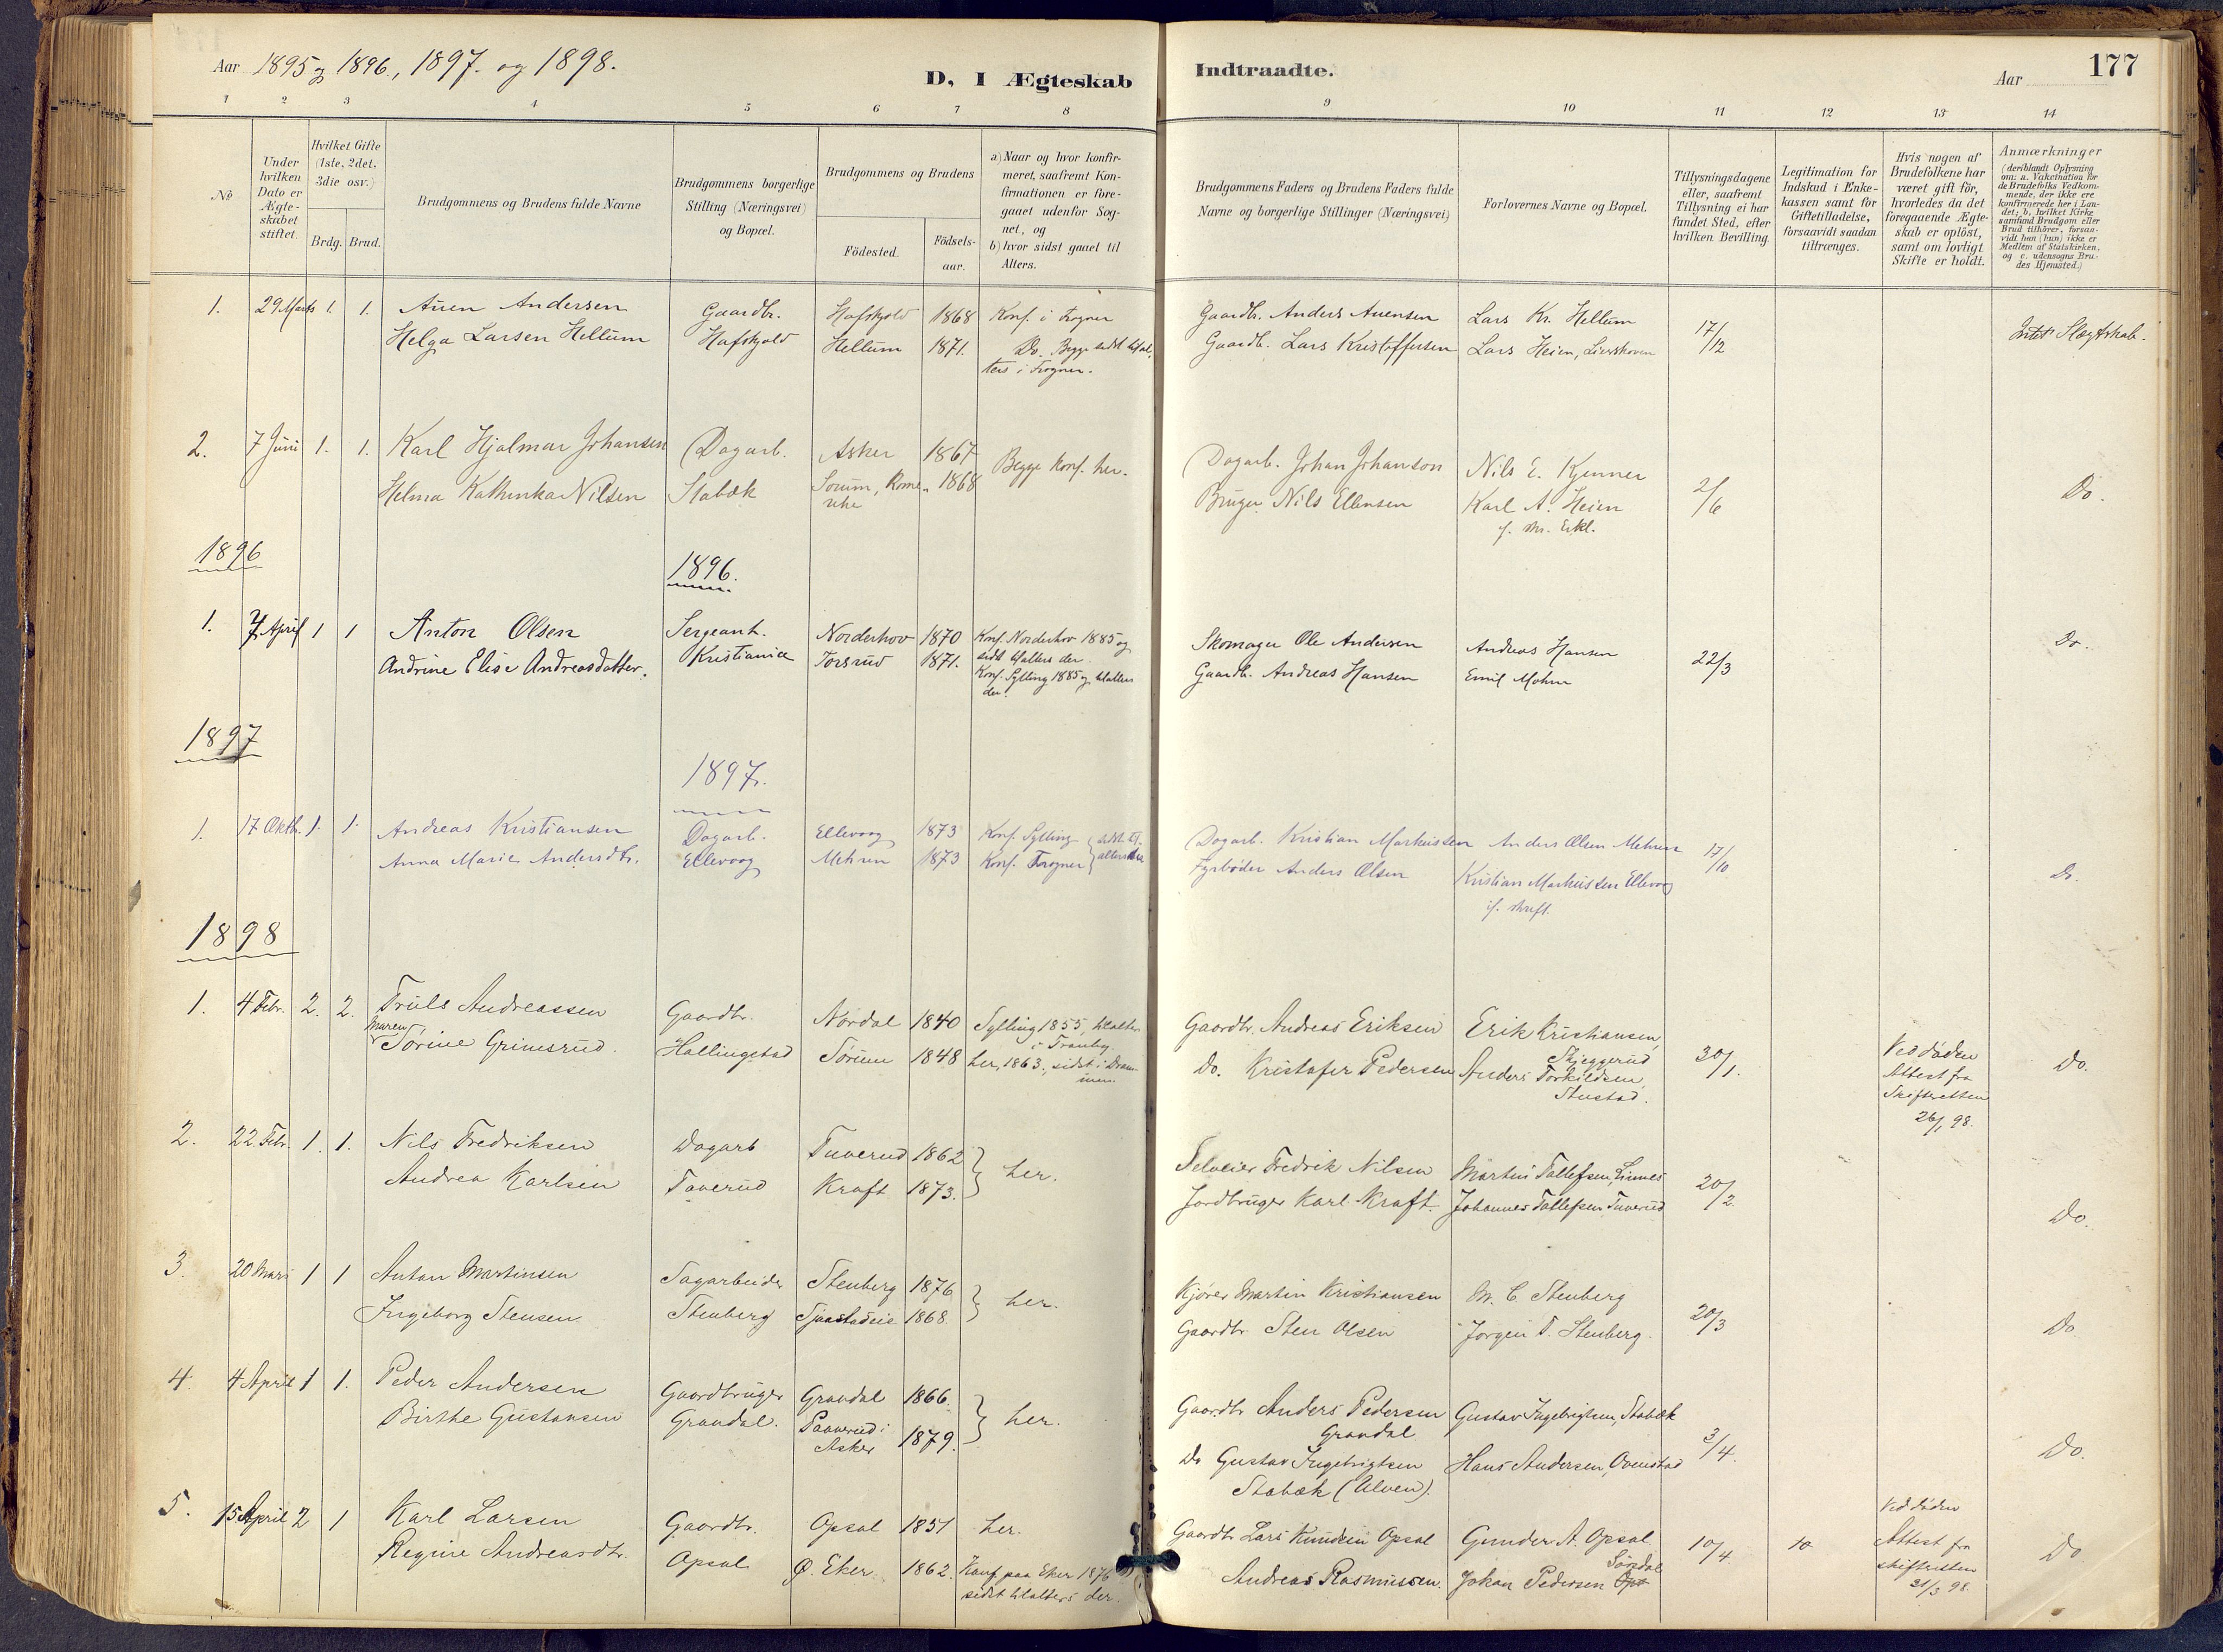 Aar 1895 og 1896., 1897. og 1898.
D, I Ægteskab
Indtraadte.
Aar
177
1 2 3 4 5 6 7 8
9 10 11 12 13 14
No
Under hvilken Dato er Ægteskabet stiftet.
Hvilket Gifte (1ste, 2det, 3die osv.)
Brdg. Brud.
Brudgommens og Brudens fulde Navne
Brudgommens borgerlige Stilling (Næringsvei) og Bopæl.
Brudgommens og Brudens
Födested.
Födselsaar.
a) Naar og hvor konfirmeret, saafremt Konfirmationen er foregaaet udenfor Sognet, og
b) hvor sidst gaaet til Alters.
Brudgommens Faders og Brudens Faders fulde Navne og borgerlige Stillinger (Næringsvei)
Forlovernes Navne og Bopæl.
Tillysningsdagene eller, saafremt Tillysning ei har fundet Sted, efter hvilken Bevilling.
Legitimation for Indskud i Enkekassen samt for Giftetilladelse, forsaavidt saadan tiltrænges.
Hvis nogen af Brudefolkene har været gift för, hvorledes da det foregaaende Ægteskab er oplöst, samt om lovligt Skifte er holdt.
Anmærkninger (deriblandt Oplysning om: a. Vakcination for de Brudefolks Vedkommende, der ikke ere konfirmerede her i Landet; b. hvilket Kirkesamfund Brudgom eller Brud tilhörer, forsaavidt han (hun) ikke er Medlem af Statskirken, og c. udensogns Brudes Hjemsted.)
1. 29 Marts 1. 1. Auen Andersen Gaardbr. Hafskjold 1868 Konf. i Frogner Gaardbr. Anders Auensen Lars Kr. Hellum 17/12 Intet Slægtskab.
Helga Larsen Hellum Hafskjold Hellum 1871. Do. Begge sidst til al,
ters i Frogner. Gaardb. Lars Kristoffersen Lars Heien, Lierskoven
2. 7 Juni 1. 1. Karl Hjalmar Johansen Dagarb. Asker 1867 Begge Konf. her. Dagarb. Johan Johanson Nils E. Kjenner 2/6 Do.
Helma Kathinka Nilsen Stabæk Sorum, Rome- 1868 Bruger Nils Ellensen Karl A. Heien
rike if. skr. Erkl.
1896
1896.
1. 7 April 1 1 Anton Olsen Sergeant. Norderhov 1870 Konf. Norderhov 1885 og Skomager Ole Andersen Andreas Hansen 22/3 Do.
sidst tilalters der.
Andrine Elise Andreasdatter. Kristiania Torsrud 1871. Konf. Sylling 1885 og tilalters
der. Gaardb. Andreas Hansen Emil Mohn
1897
1897.
1. 17 Oktb. 1. 1. Andreas Kristiansen Dagarb. Ellevoog 1873 Konf. Sylling sidst til Dagarb. Kristian Markussen Anders Olsen Mehren 17/10 Do.
Anna Marie Andersdtr. Ellevoog Mehren 1873 Konf. Frogner alters her Fyrbøder Anders Olsen Kristian Markussen Ellevoog
if. skrift.
1898
1. 4 Febr. 2. 2. Truls Andreassen Gaardbr. Nordal 1840 Sylling 1855, tilalters
i Tranby. Gaardbr. Andreas Eriksen Erik Kristiansen, Skjeggerud 30/1. Ved døden Attest fra Skifteretten 26/1 98. Do.
Maren Sørine Grimsrud. Hallingstad Sörum 1848 her, 1863., sidst i Drammen. Do. Kristofer Pedersen Anders Torkildsen, Stustad.
2. 22 Febr. 1. 1. Nils Fredriksen Dagarb Tuverud 1862 her. Selveier Fredrik Nilsen Martin Tollefsen, Linnes 20/2. Do.
Andrea Karlsen Tuverud Kraft 1873. Jordbruger Karl Kraft. Johannes Tollefsen Tuverud
3. 20 Mars 1 1 Anton Martinsen Sagarbeider Stenberg 1876 her. Kjører Martin Kristiansen M. C. Stenberg 20/3 Do.
Ingeborg Stensen Stenberg Sjaastadeie 1868. Gaardbr Sten Olsen Jorgen T. Stenberg.
4. 4 April 1 1. Peder Andersen Gaardbruger Grandal 1866. her. Gaardbr Anders Pedersen Gustav Ingebrigtsen, Stabæk 3/4. Do.
Grandal
Birthe Gustavsen Grandal. Paaverud i 1879. Do Gustav Ingebrigtsen Hans Andersen, Ovenstad
Asker Stabæk (Ulven).
5. 15 April 2 1 Karl Larsen Gaardbr. Opsal 1851 her. Gaardbr Lars Knudsen Opsal Gunder A. Opsal 10/4. 10 Ved døden Attest fra skifteretten 21/3 98. Do
Regine Andreasdtr. Opsal Ø. Eker. 1862. Konf. paa Eker 1876 Andreas Rasmussen. Johan Pedersen Söndal
sidst tilalters der.